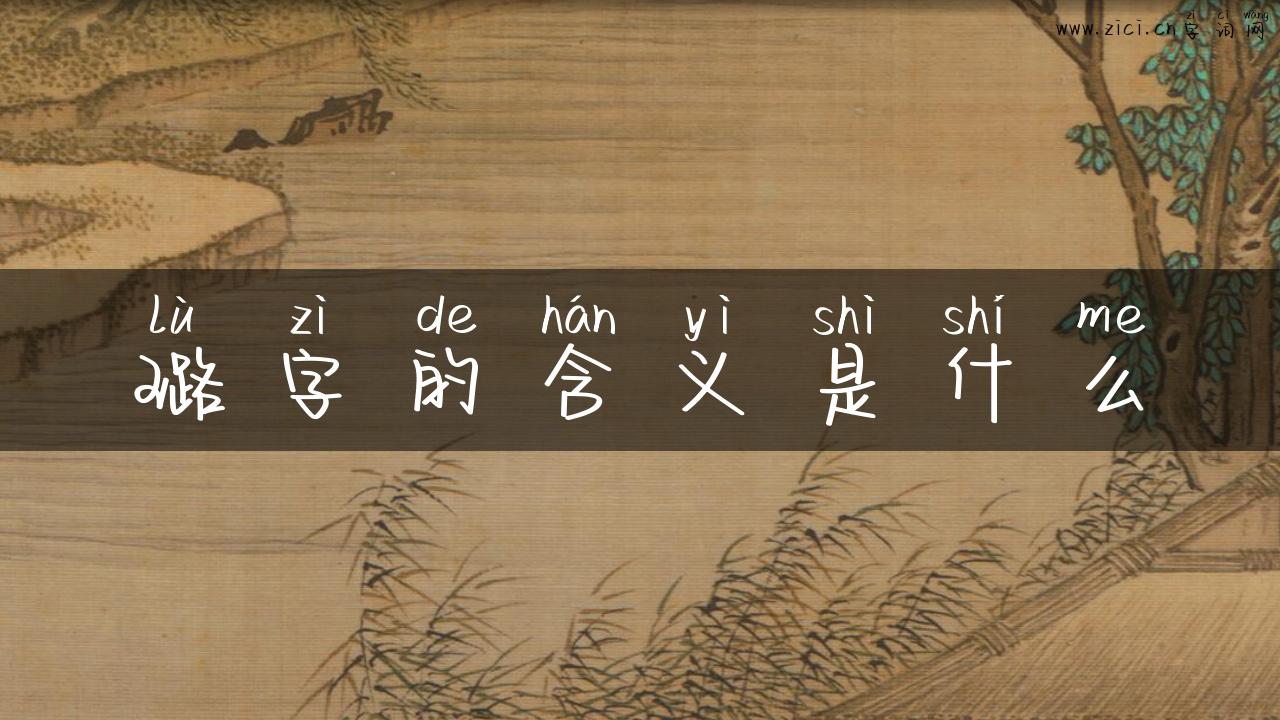 zì cí wǎng
www.zici.cn字词网
lù zì de hán yì shì shí me
璐字的含义是什么